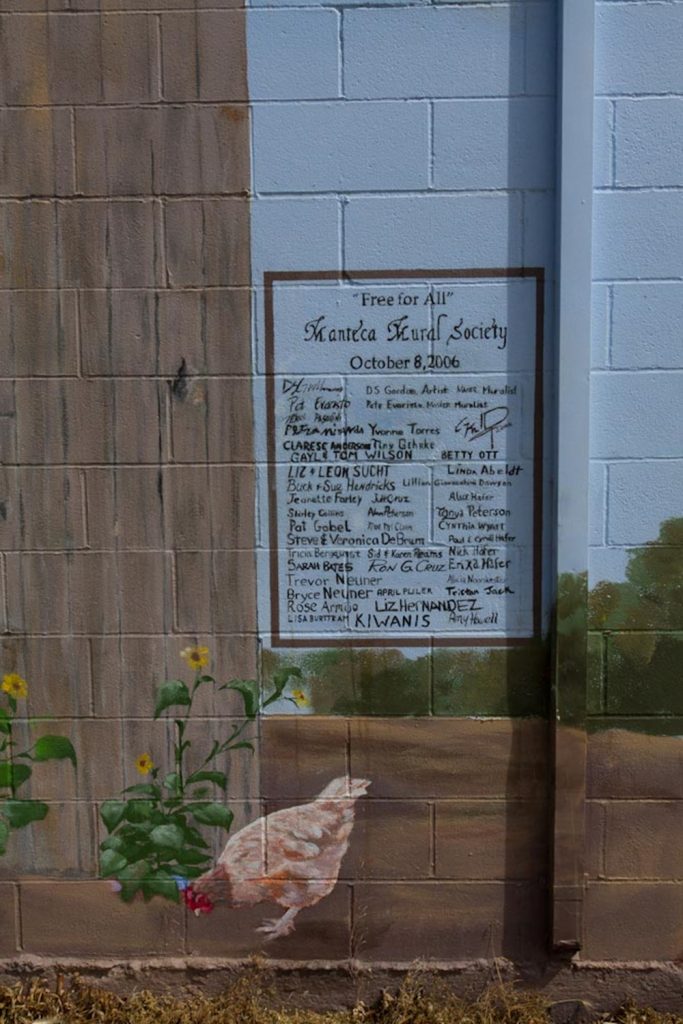 "Free for All"
Manteca Mural Society
October 8, 2006
DS Gordon, Artist
Pat Evaristo Pete Evaristo, Muralist
Yvonne Torres
CLARESE ANDERSON Tiny Gehrke
GAYL & TOM WILSON BETTY OTT
LIZ & LEON SUCHT Linda Abeldt
Buck & Sue Hendricks Lillian
Jeanette Farley Cruz Alice Hafer
Shirley Collins Alan Peterson Tonya Peterson
Pat Gobel CYNTHIA WYATT
Steve & Veronica DeBrum Paul & Cyndi Hafer
Tricia Bergquist Sid & Karen Reams Nick Hafer
SARAH BATES RON G. CRUZ Erika Hafer
Trevor Neuner
Bryce Neuner APRIL Tristan Jack
Rose Armijo LIZ HERNANDEZ
LISA KIWANIS Amy Howell